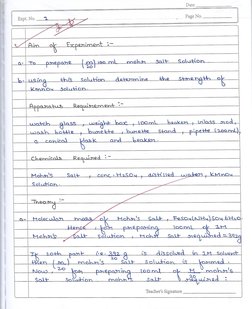 Date
Expt. No. 1
Page No.
Aim of Experiment :-
a. To prepare 100 ml mohr salt solution
b. using this solution determine the strength of
KMnO4 solution.
Apparatus Requirement :-
watch glass, weight box, 100ml beaker, glass rod,
wash bottle, burette, burette stand, pipette (20ml),
a conical flask and beaker.
Chemicals Required :-
Mohr's salt, conc. H2SO4, distilled water, KMnO4
solution.
Theory :-
a. Molecular mass of Mohr's salt, FeSO4(NH4)2SO4.6H2O
Hence, for preparing 1000ml of 1M
Mohr's salt solution, Mohr salt required = 392g
If 20th part i.e. 392 g is dissolved in 1M solvent
then mohr's salt solution is formed
Now, for preparing 100ml of M/20 mohr's
salt solution mohr's salt required:
Teacher's Signature